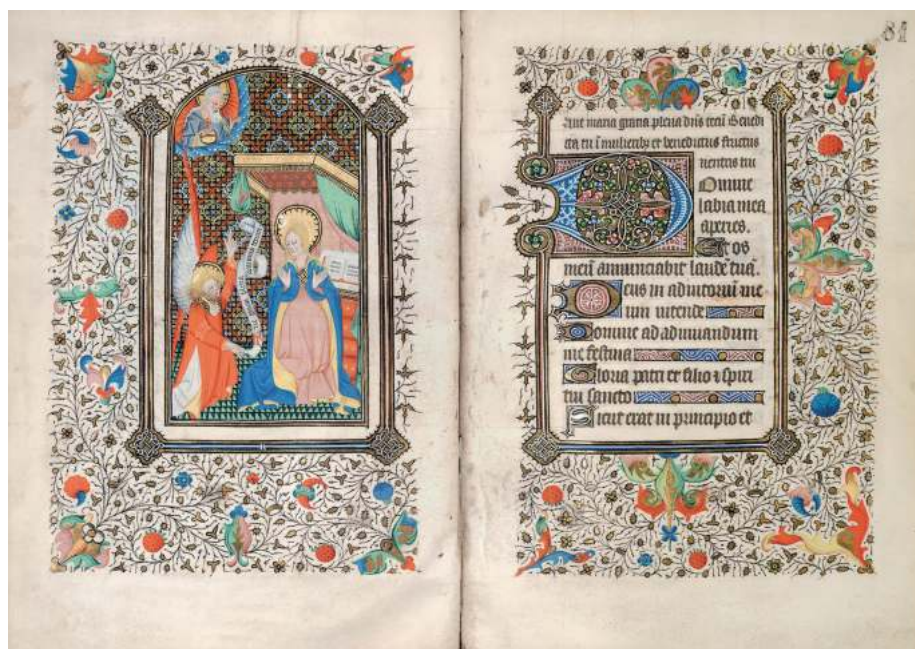 81
Aue maria gracia plena dn̄s tecū Benedi
cta tu ī mulierib; et benedictus fructus
uentris tui
Domine
labia mea
aperies.
Et os
meū annunciabit laudē tuā.
Deus in adiutoriū me
um intende
Domine ad adiuuandum
me festina
Gloria patri et filio ⁊ spiri
tui sancto
Sicut erat in principio et